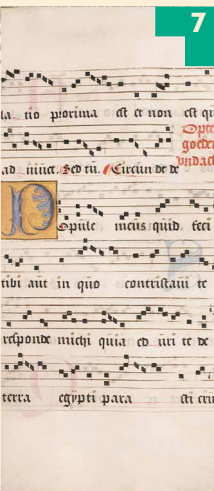 7
la tio proxima est et non est qu
ad iuuet. Sed tu. Circundede
Opule meus quid feci
tibi aut in quo contristaui te
responde michi quia eduxi te de
terra egypti para sti cru